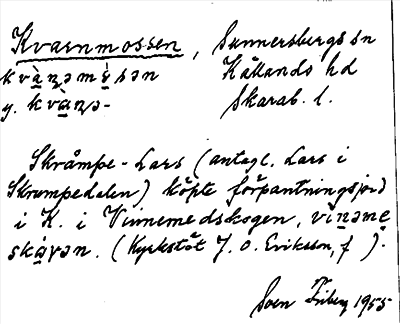 Kvarnmossen, Sunnersbergs sn
kvàṇəmé̩sən Kållands hd
y. kvàṇə- Skarab. l.
Skråmpe-Lars (antagl. Lars i
Skrumpedalen) köpte förpantningsjord
i K. i Vinnemedskogen, vínəme
skávən. (Kyrkstöt J. O. Eriksson, f ).
Sven Friberg 1955